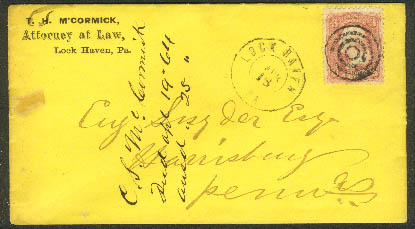 T. H. M'CORMICK,
Attorney at Law,
Lock Haven, Pa.
LOCK HAVEN
18
C. S. McCormick
19 64
ansd 25 "
Eug Snyder Esq
Harrisburg
Penna